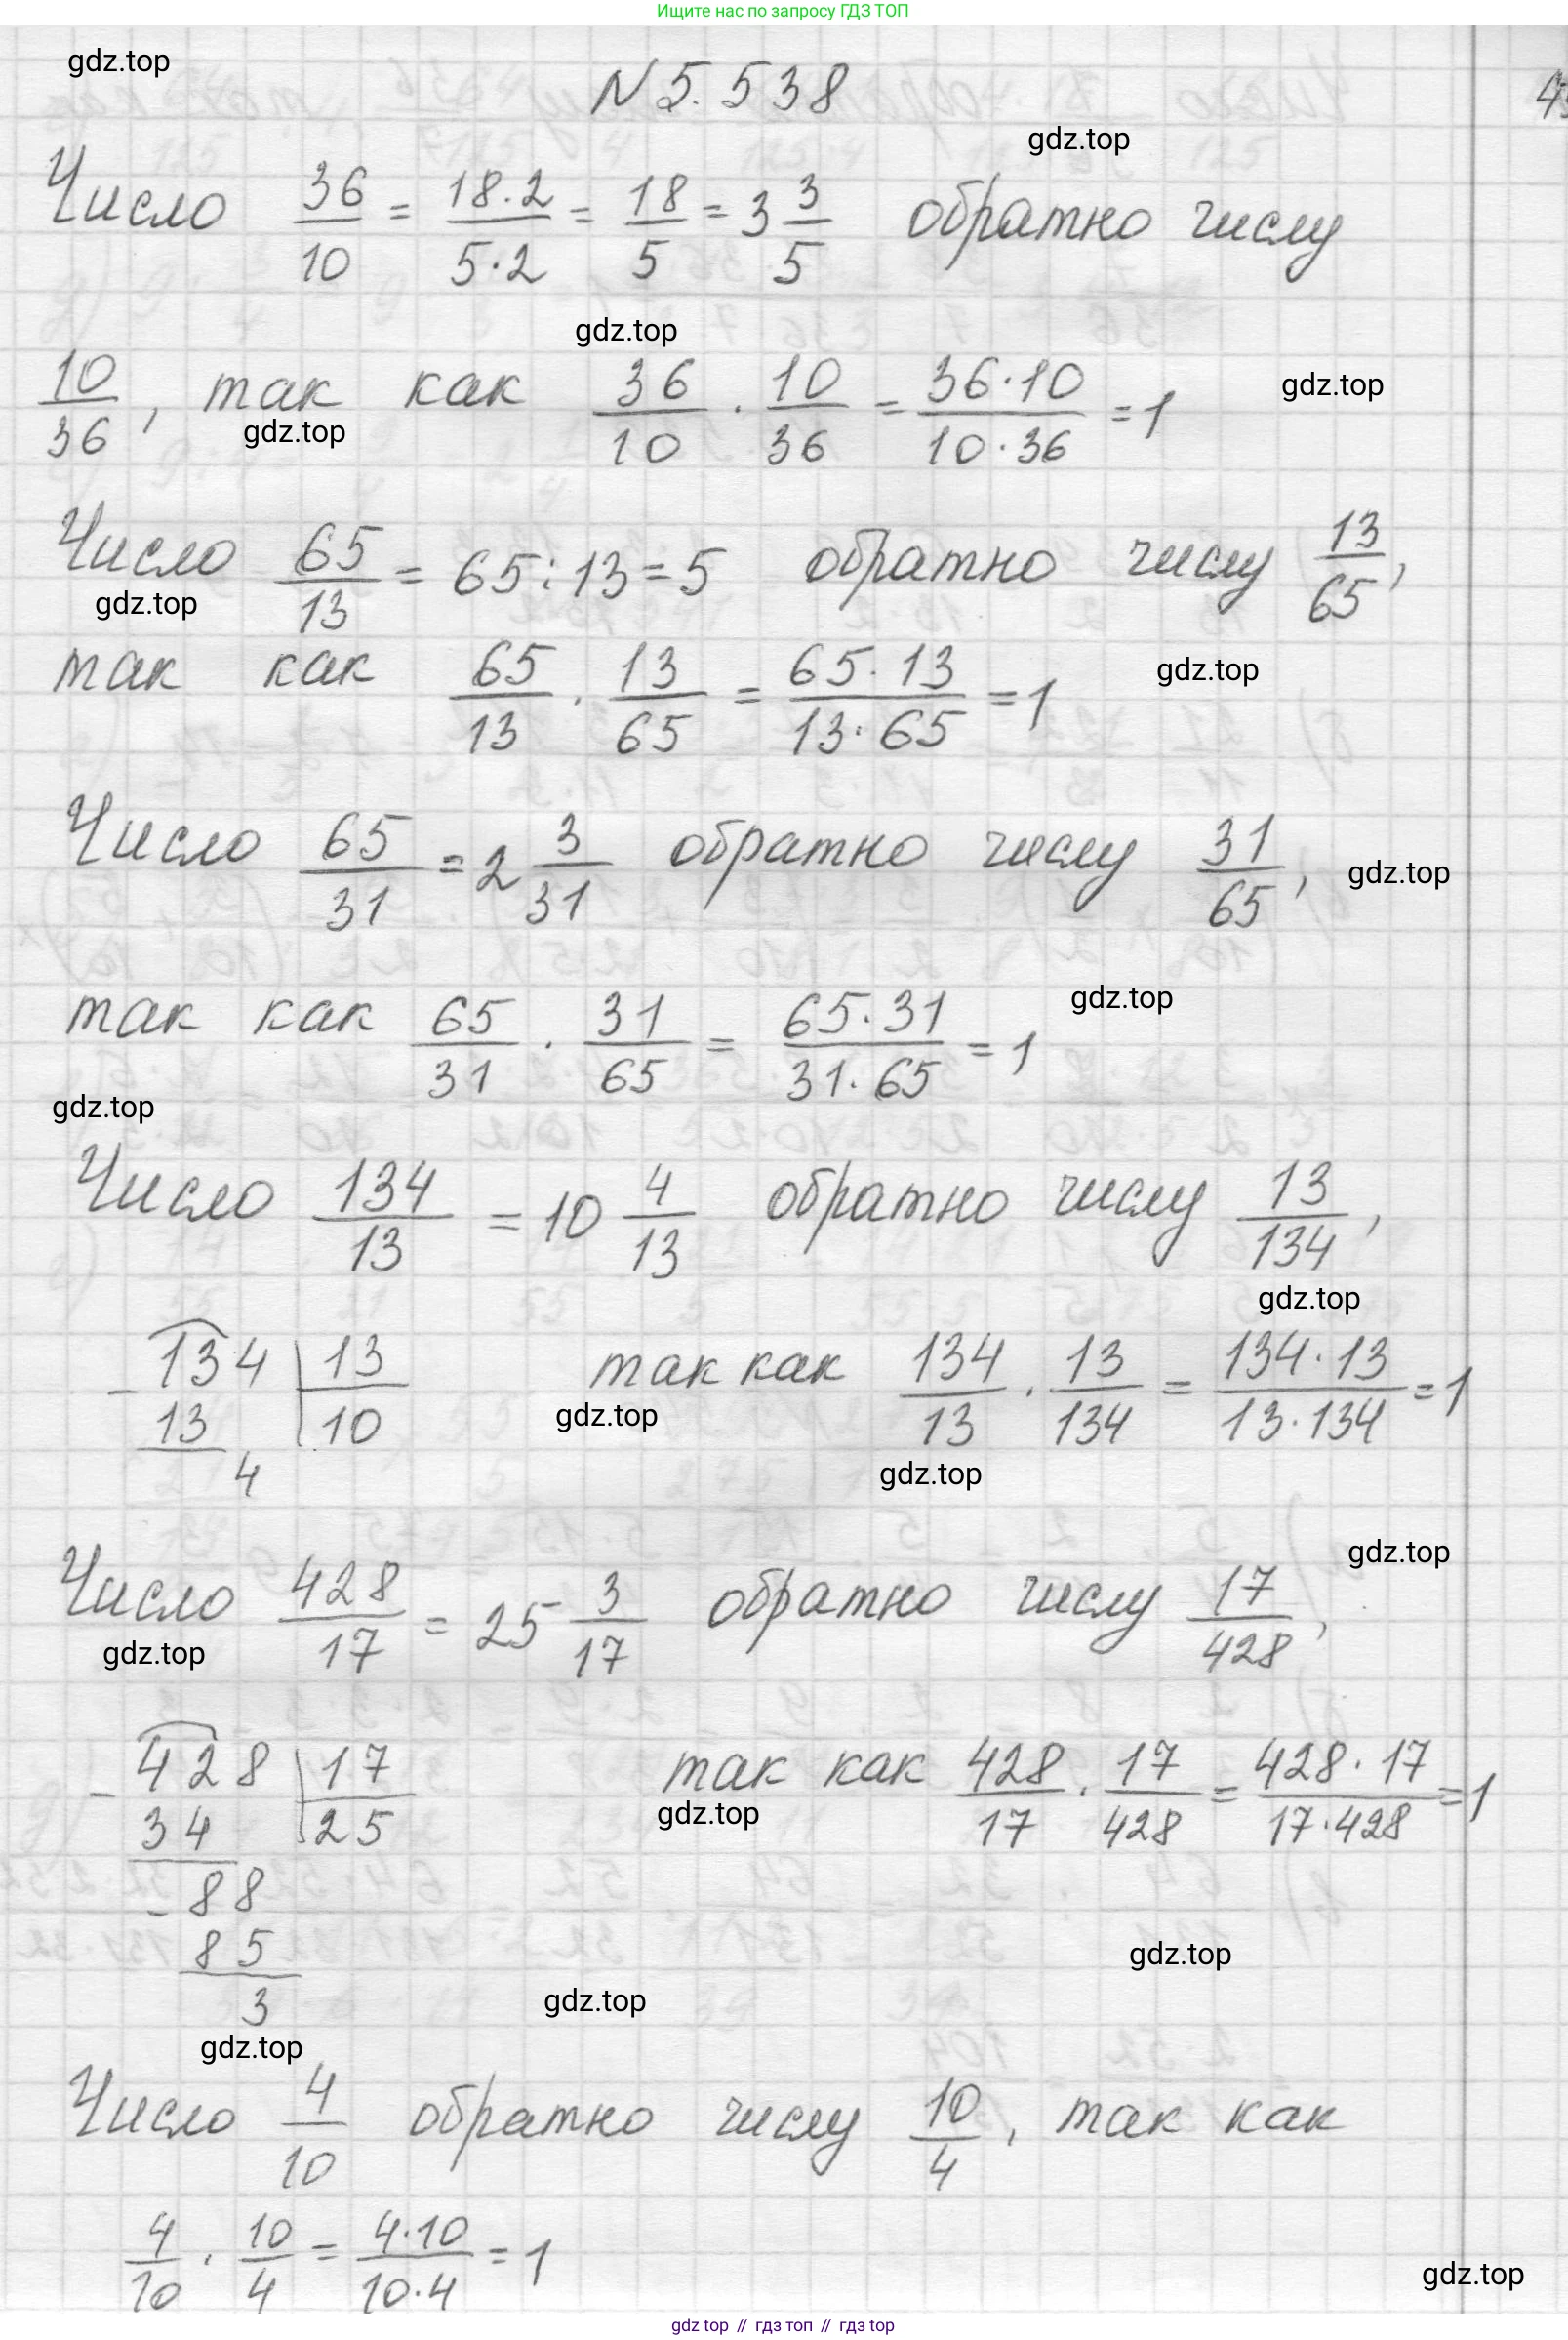 Ищите нас по запросу ГДЗ ТОП
gdz.top
N 5.538
gdz.top
Число 36/10 = 18·2/5·2 = 18/5 = 3 3/5 обратно числу
gdz.top
10/36, так как 36/10 · 10/36 = 36·10/10·36 = 1
gdz.top
gdz.top
Число 65/13 = 65:13 = 5 обратно числу 13/65,
gdz.top
так как 65/13 · 13/65 = 65·13/13·65 = 1
gdz.top
Число 65/31 = 2 3/31 обратно числу 31/65,
gdz.top
так как 65/31 · 31/65 = 65·31/31·65 = 1
gdz.top
gdz.top
Число 134/13 = 10 4/13 обратно числу 13/134,
gdz.top
134 | 13
- 13 | 10
4
так как 134/13 · 13/134 = 134·13/13·134 = 1
gdz.top
gdz.top
gdz.top
Число 428/17 = 25 3/17 обратно числу 17/428,
gdz.top
428 | 17
- 34 | 25
- 88
85
3
так как 428/17 · 17/428 = 428·17/17·428 = 1
gdz.top
gdz.top
gdz.top
gdz.top
Число 4/10 обратно числу 10/4, так как
4/10 · 10/4 = 4·10/10·4 = 1
gdz.top
gdz top // гдз топ // gdz.top